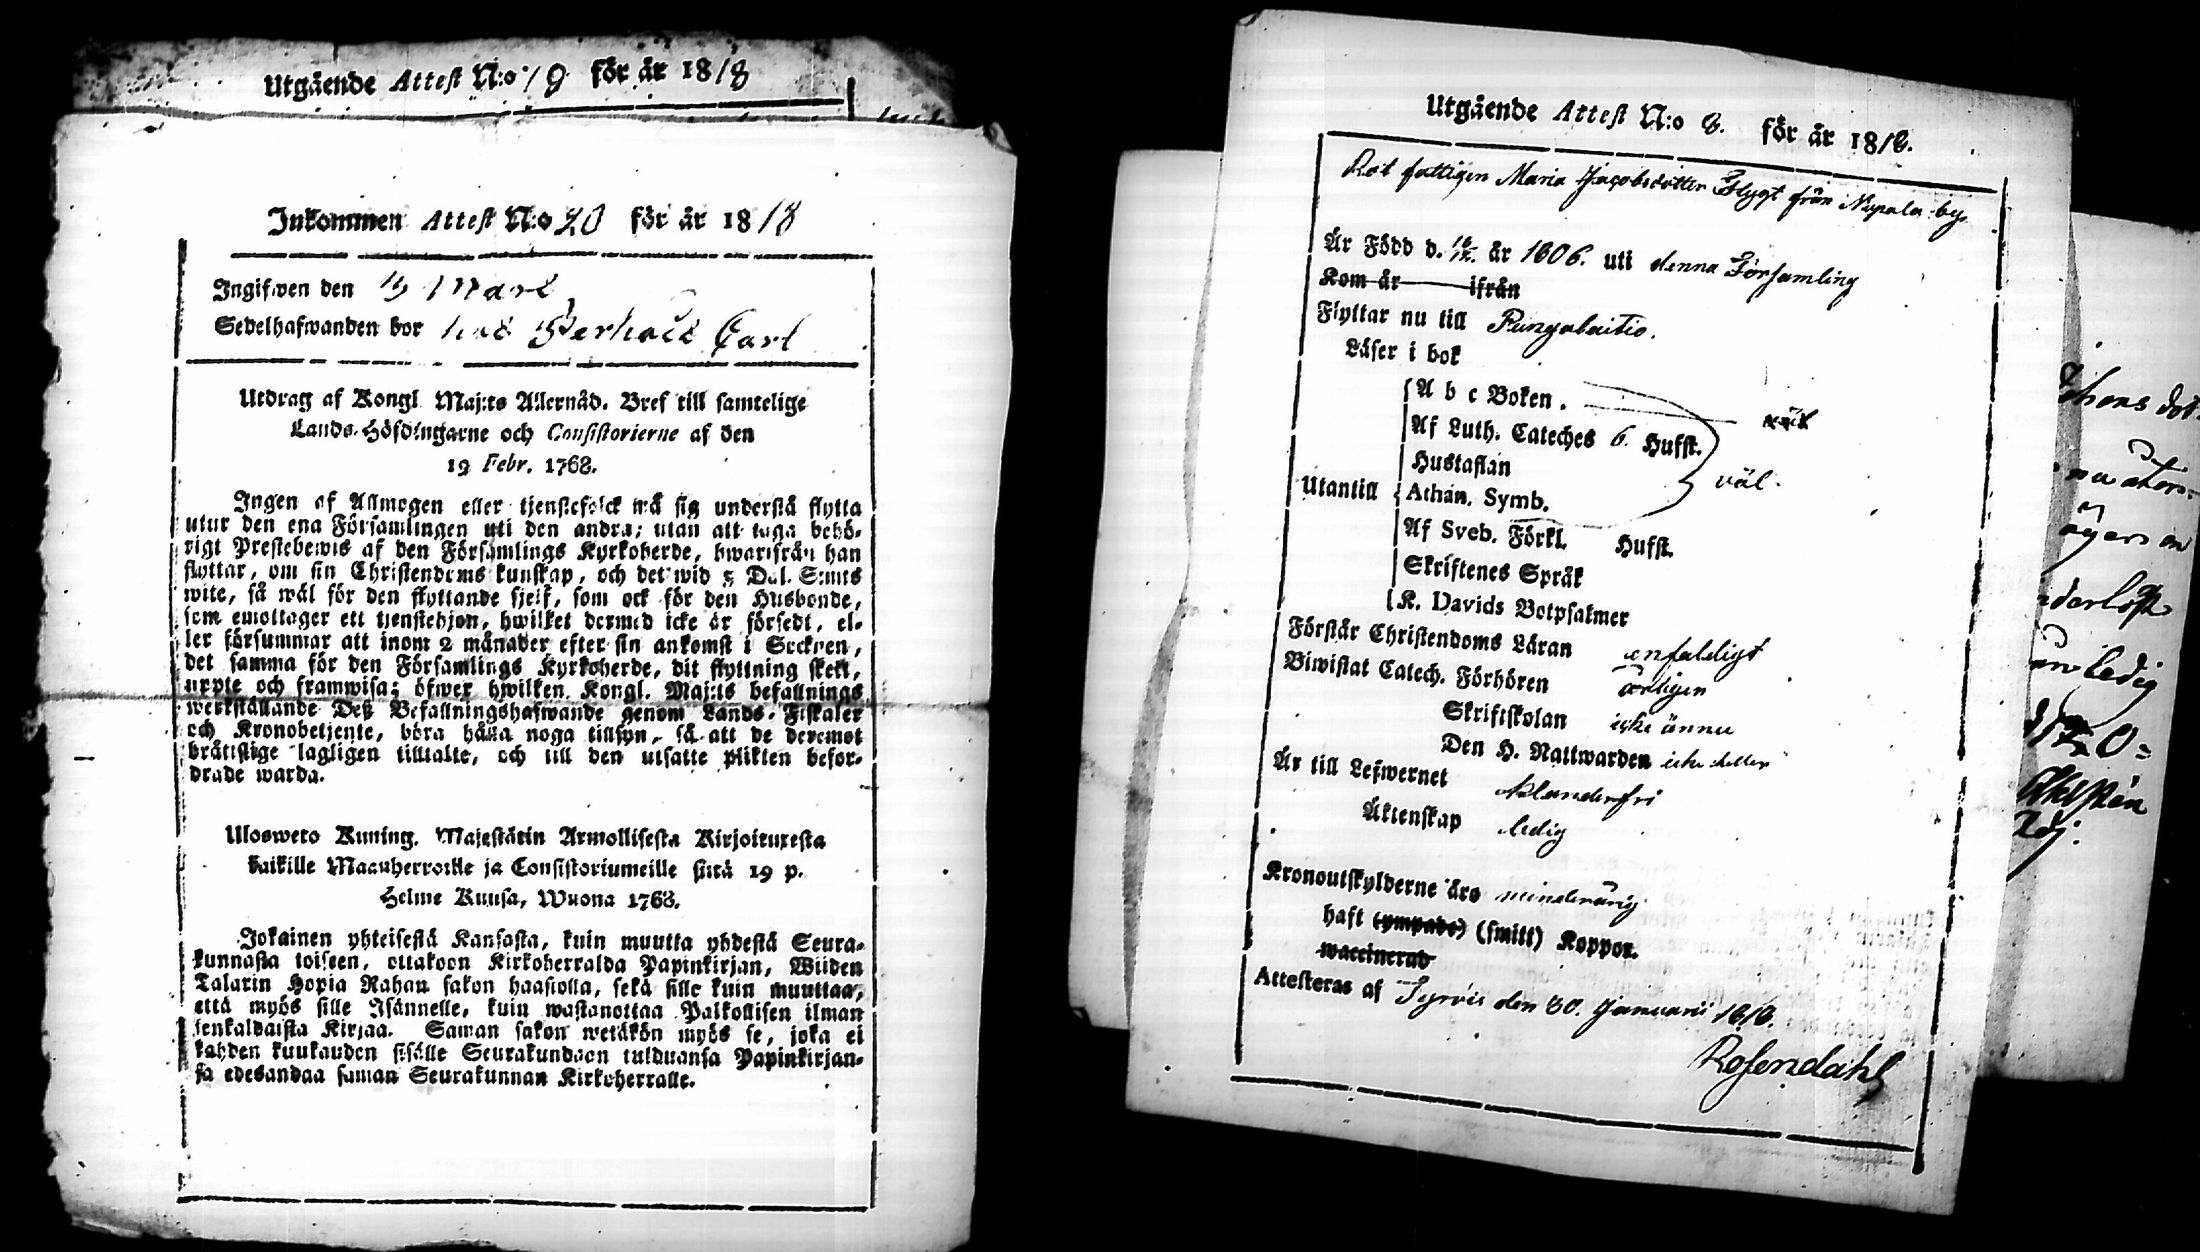 Utgående Attest N:o 19 för år 1818
Inkommen Attest N:o 20 för år 1818
Ingifwen den 19 Mart
Sedelhafwanden bor hos Perhola Carl
Utdrag af Kongl. Maj:ts Allernåd. Bref till samtelige
Lands-Höfdingarne och Consistorierne af den
19 Febr. 1768.
Ingen af Allmogen eller tjenstefolck må sig understå flytta
utur den ena Församlingen uti den andra; utan att taga behö-
rigt Prestebewis af den Församlings Kyrkoherde, hwarifrån han
flyttar, om sin Christendoms kunskap, och det wid 5 Dal. S:mts
wite, så wäl för den flyttande sjelf, som ock för den Husbonde,
som emottager ett tjenstehjon, hwilket dermed icke är försedt, el-
ler försummar att inom 2 månader efter sin ankomst i Socknen,
det samma för den Församlings Kyrkoherde, dit flyttning skett,
uppte och framwisa; öfwer hwilken Kongl. Maj:ts befallnings
werkställande Deß Befallningshafwande genom Lands-Fiskaler
och Kronobetjente, böra hålla noga tillsyn, så att de deremot
bråttslige lagligen tilltalte, och till den utsatte plikten befor-
drade warda.
Ulosweto Kuning. Majestätin Armollisesta Kirjoituxesta
kaikille Maanherroille ja Consistoriumeille siitä 19 p.
Helme Kuusa, Wuona 1768.
Jokainen yhteisestä Kansasta, kuin muutta yhdestä Seura-
kunnasta toiseen, ottakoon Kirkoherralda Papinkirjan, Wiiden
Talarin Hopia Rahan sakon haastolla, sekä sille kuin muuttaa,
että myös sille Isännelle, kuin wastanottaa Palkollisen ilman
senkaldaista Kirjaa. Saman sakon wetäkön myös se, joka ei
kahden kuukauden sisälle Seurakundaan tulduansa Papinkirjan-
sa edesandaa saman Seurakunnan Kirkoherralle.
Utgående Attest N:o 8. för år 1818.
Rot fattigen Maria Jacobsdotter Flygt från Nupala by.
Är Född d. 16/12. år 1806. uti denna Församling
Kom år ifrån
Flyttar nu till Pungalaitio.
Läser i bok
A b c Boken.
väl
Af Luth. Cateches 6. Hufst.
Hustaflan
väl.
Utantill
Athan. Symb.
Af Sveb. Förkl. Hufst.
Skriftenes Språk
K. Davids Botpsalmer
Förstår Christendoms Läran enfaldigt
Biwistat Catech. Förhören årligen
Skriftskolan icke ännu
Den H. Nattwarden icke heller
Är till Lefwernet klanderfri
Äktenskap ledig
Kronoutskylderne äro minderårig
haft (ympade) (smitt) Koppor.
waccinerad
Attesteras af Tyrvis den 30. Januarii 1818.
Rosendahl